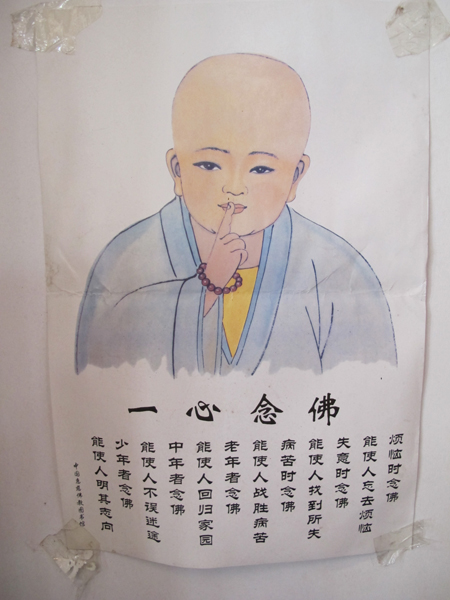 一心念佛
烦恼时念佛
能使人忘去烦恼
失意时念佛
能使人找到所失
病苦时念佛
能使人战胜病苦
老年者念佛
能使人回归家园
中年者念佛
能使人不误迷途
少年者念佛
能使人明其志向